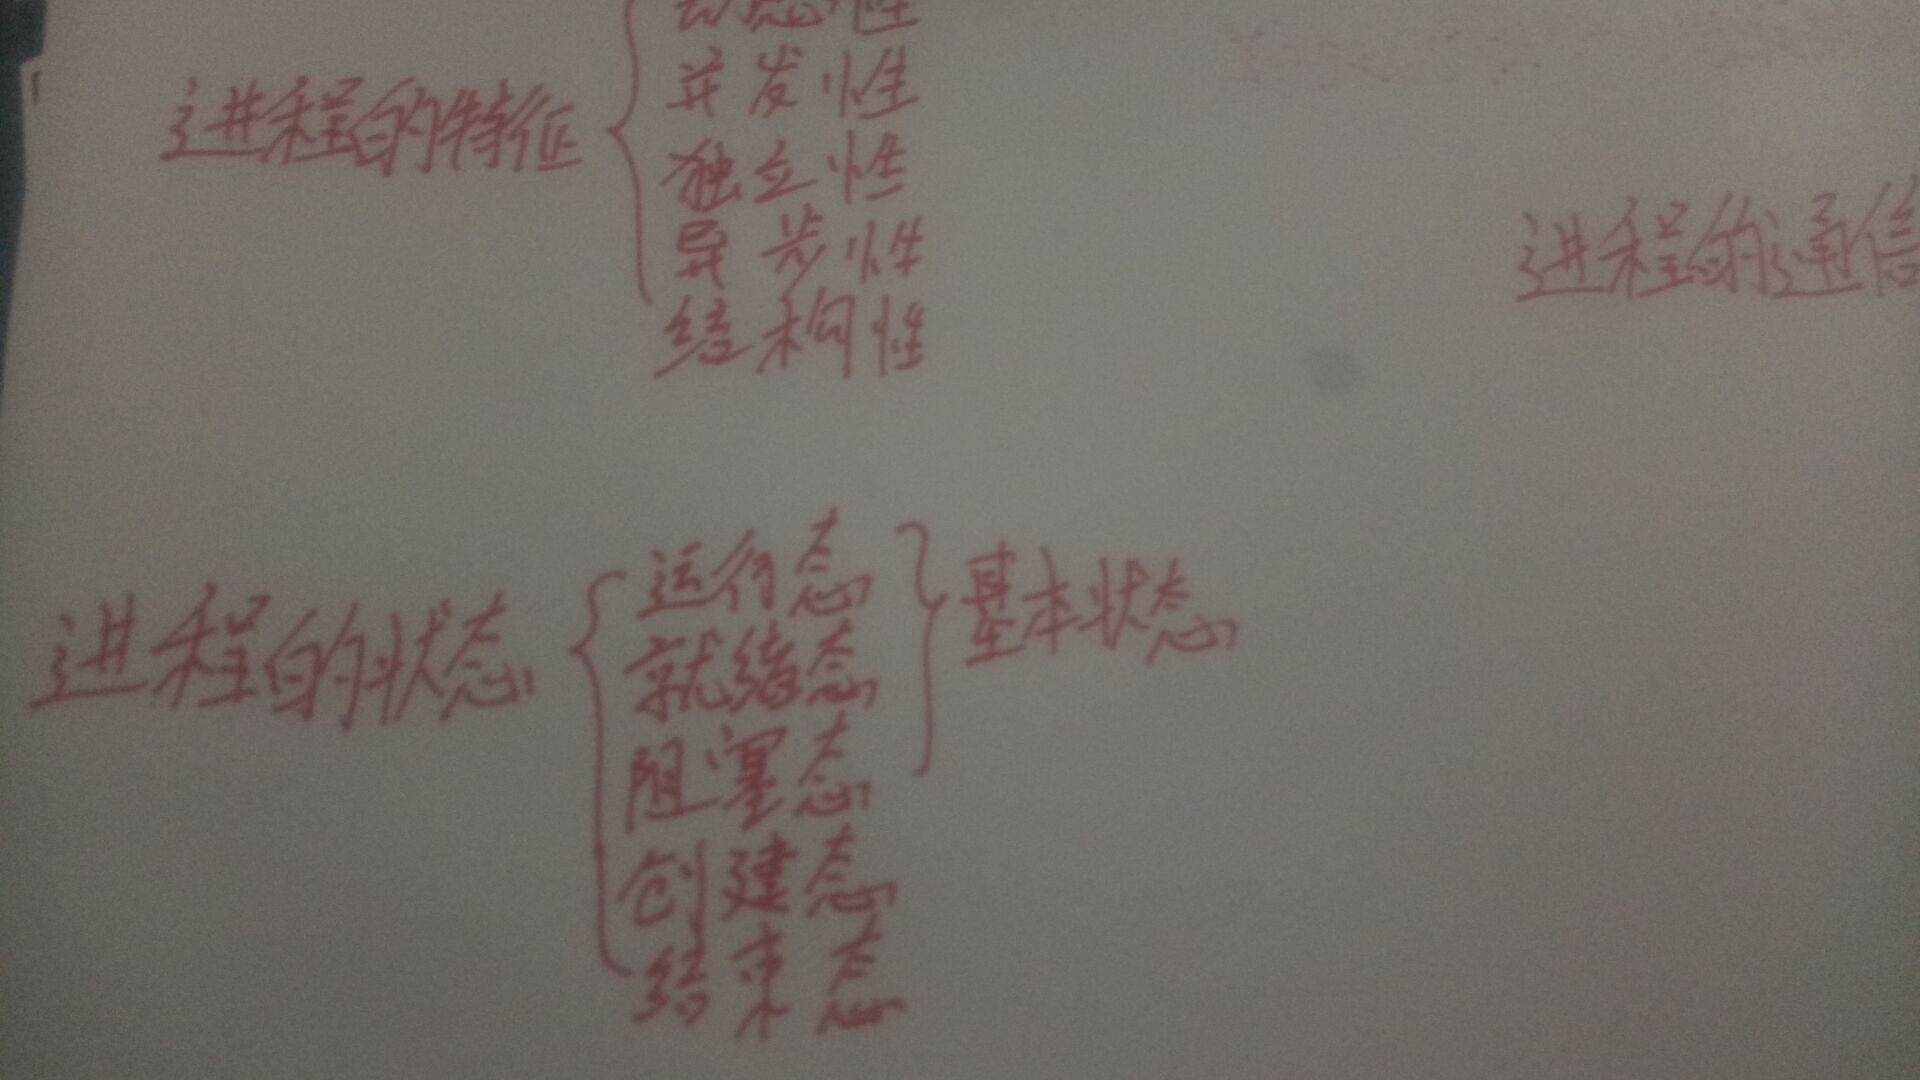 动态性
并发性
进程的特征
独立性
异步性
结构性
进程的通信
运行态
就绪态
基本状态
进程的状态
阻塞态
创建态
结束态